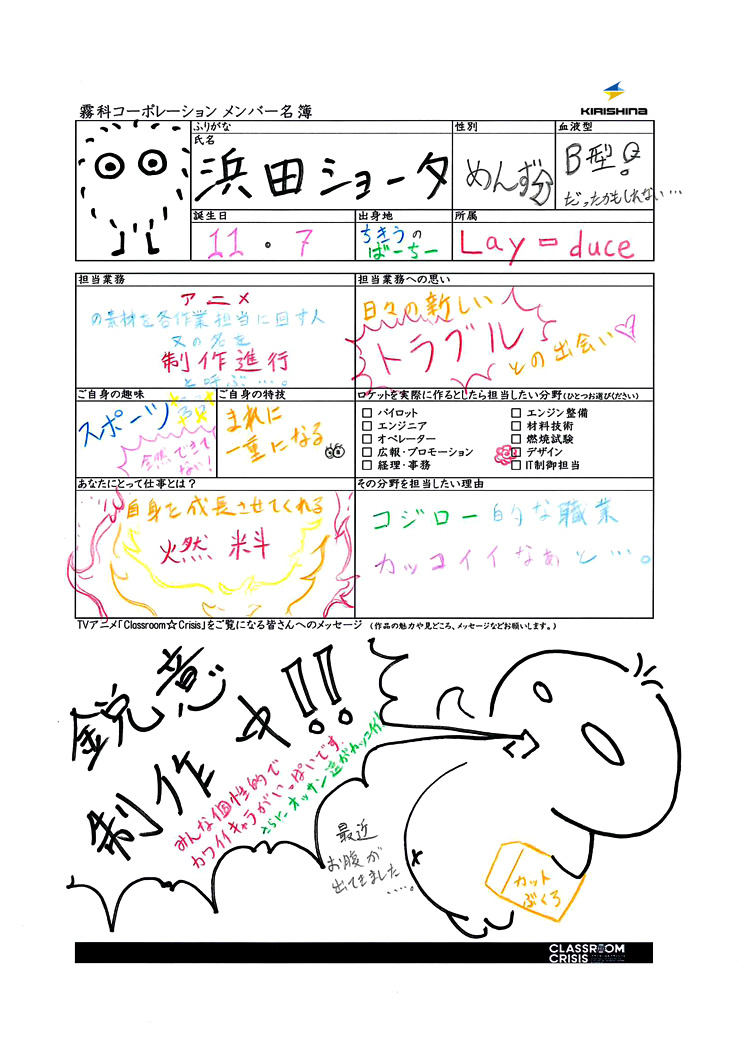 KIRISHINA
霧科コーポレーション メンバー名簿
ふりがな
性別
血液型
氏名
浜田ショータ
めんず分
B型。
だったかもしれない…
誕生日
出身地
所属
11・7
ちきうの
ばーちー
Lay=duce
担当業務
担当業務への思い
アニメ
の素材を各作業担当に回す人
又の名を
制作進行
と呼ぶ…。
日々の新しい
トラブル
との出会い♡
ご自身の趣味
ご自身の特技
ロケットを実際に作るとしたら担当したい分野(ひとつお選びください)
スポーツ
全然できて
ない!
まれに
一重になる
□ パイロット
□ エンジニア
□ オペレーター
□ 広報・プロモーション
□ 経理・事務
□ エンジン整備
□ 材料技術
□ 燃焼試験
□ デザイン
□ IT制御担当
あなたにとって仕事とは?
その分野を担当したい理由
自身を成長させてくれる
燃料
コジロー的な職業
カッコイイなぁと…。
TVアニメ「Classroom☆Crisis」をご覧になる皆さんへのメッセージ (作品の魅力や見どころ、メッセージなどお願いします。)
鋭意
制作中!!
みんな個性的で
カワイイキャラがいっぱいです。
さらにオッサン達がカッコイイ!
最近
お腹が
出てきました…。
カット
ぶくろ
CLASSROOM
CRISIS